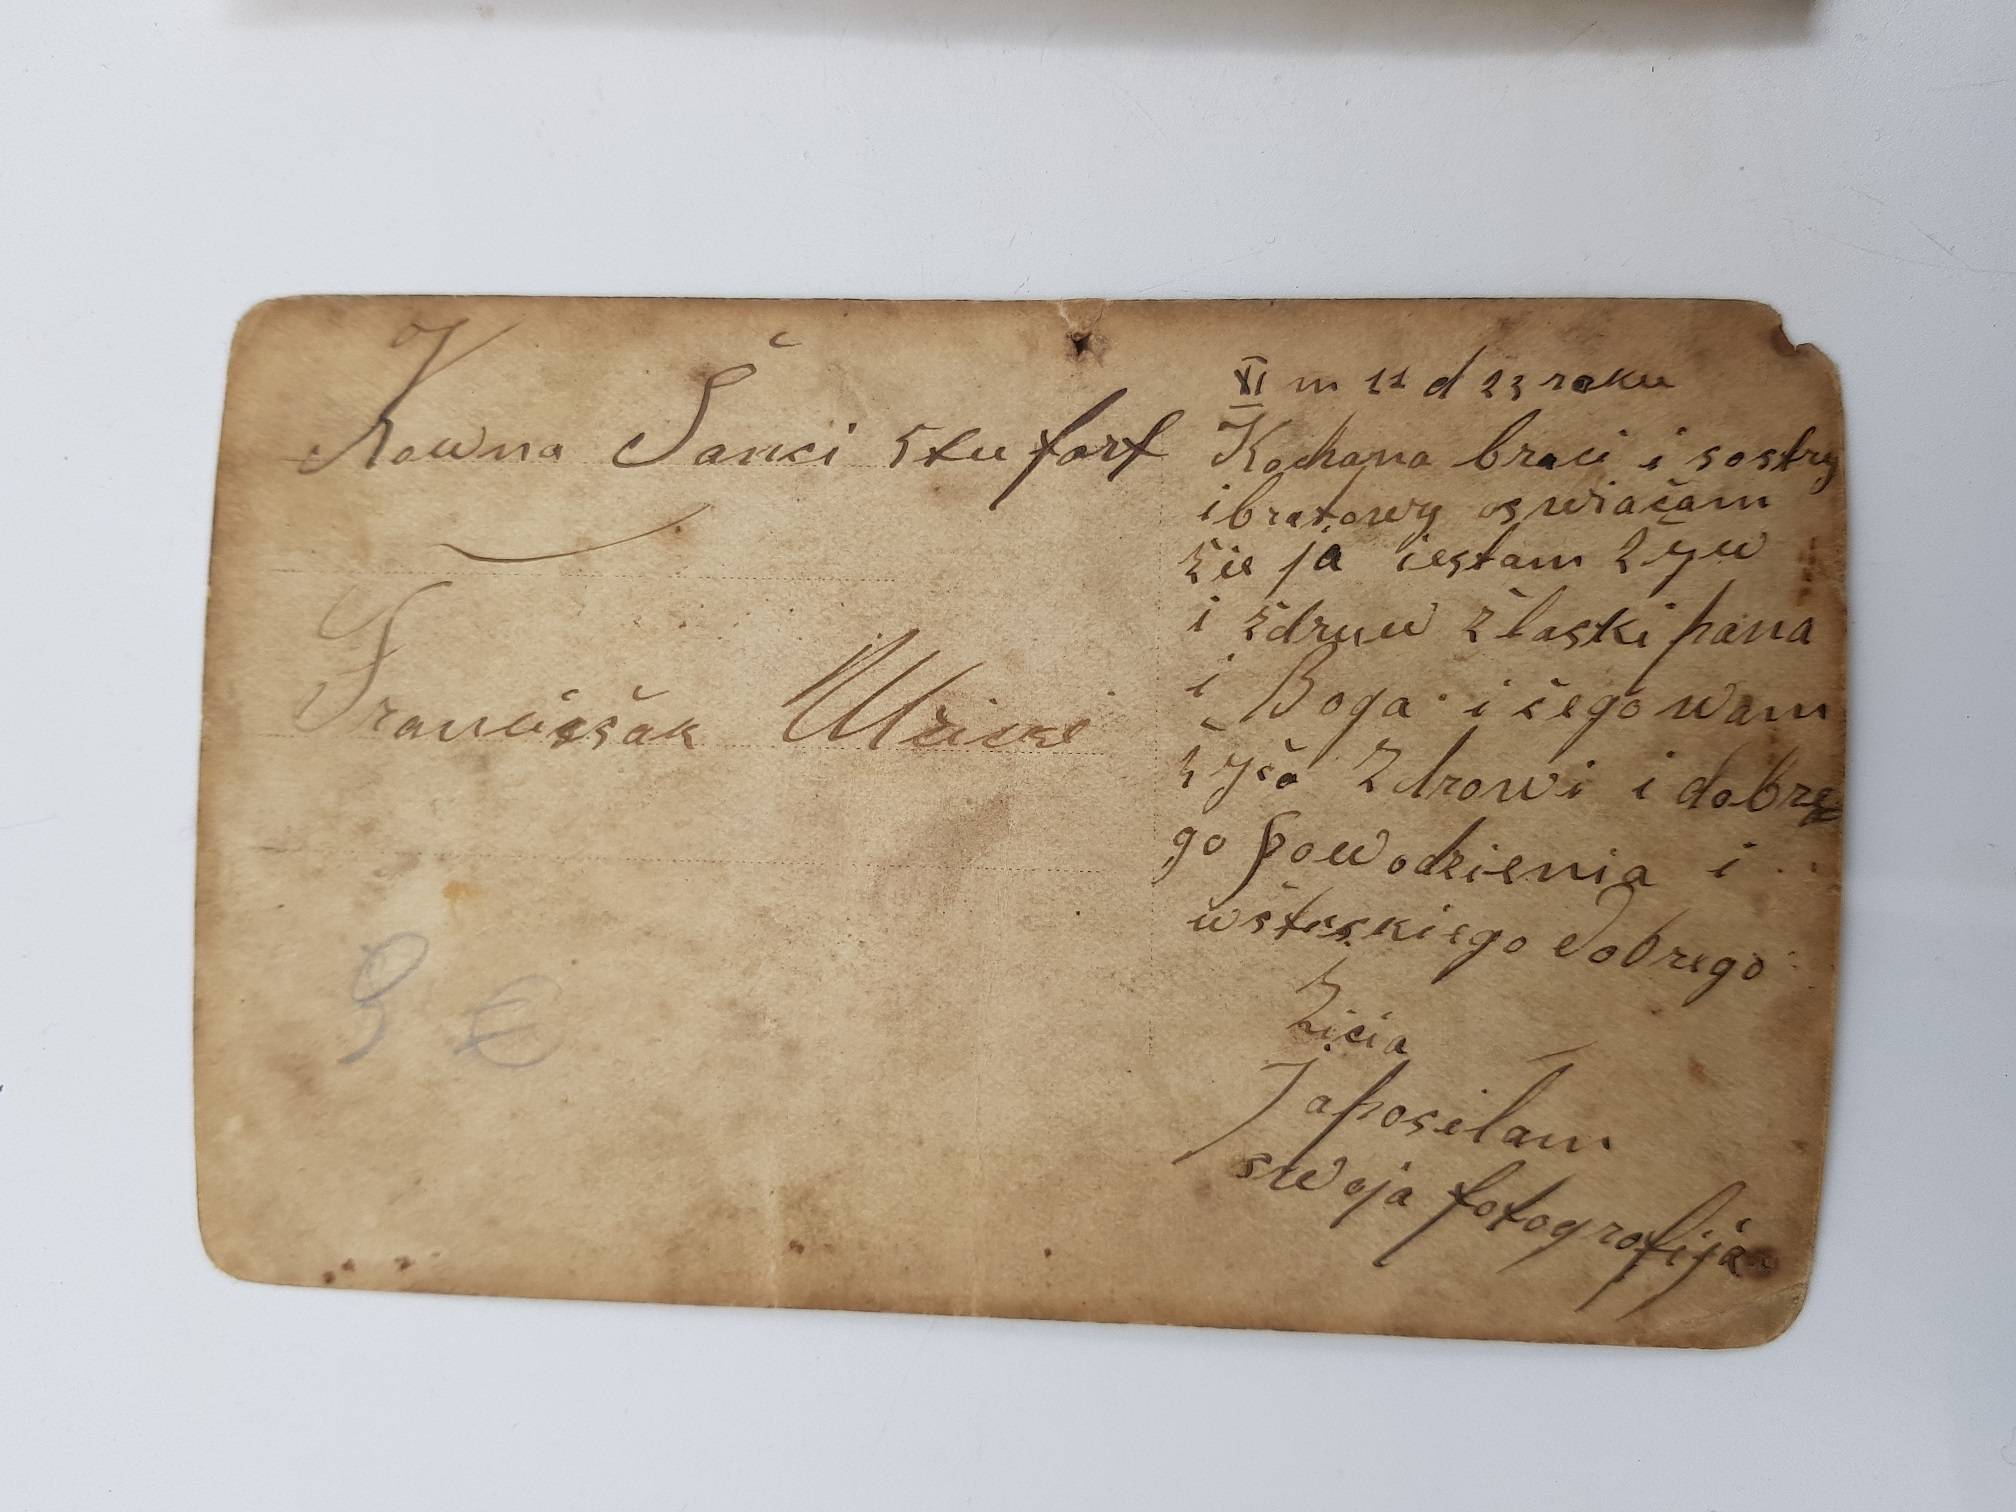 Kowna Šanci 5tu fort
Franciššak
XI m 11 d 23 roku
Kochana braci i sostry
i bratowy oswiačam
žie ja iestam žyw
i zdruw z łaski pana
i Boga i čego wam
žyčo Zdrowi i dobre
go powodzienia i
wšteskiego dobrego
žicia
Ja posilam
swoja fotografija
9 €